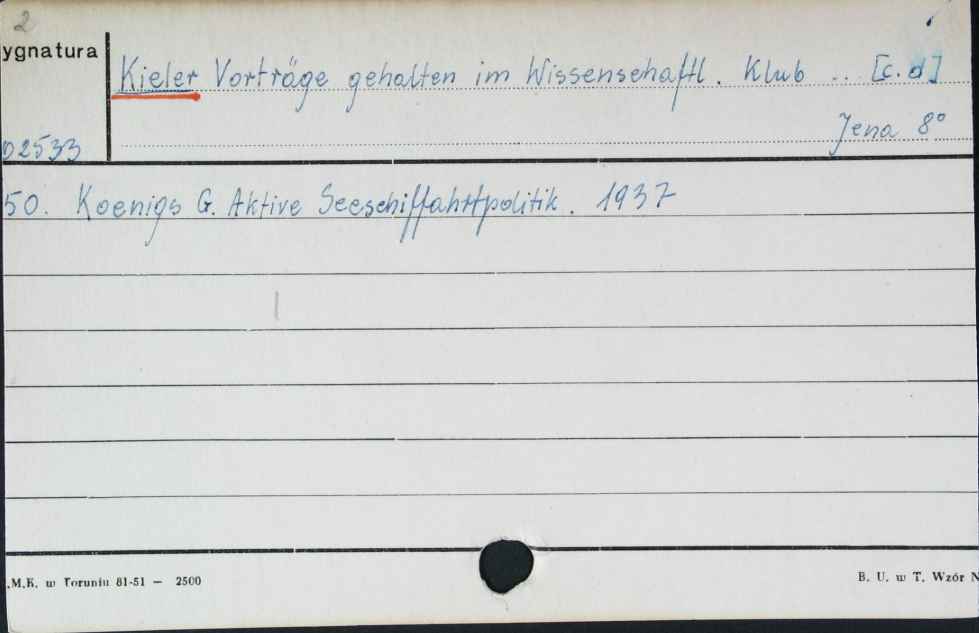 2
ygnatura
Kieler Vorträge gehalten im Wissenschaftl. Klub ... [c.d]
Jena 8°
02533
50. Koenigs G. Aktive Seeschiffahrtpolitik. 1937
.M.K. w Toruniu 81-51 — 2500
B. U. w T. Wzór N